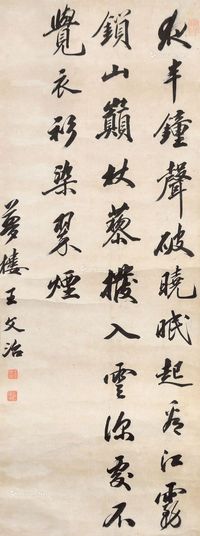 夜半鐘聲破曉眠起看江霧
鎖山巔杖藜撥入雲深處不
覺衣衫染翠煙
夢樓王文治